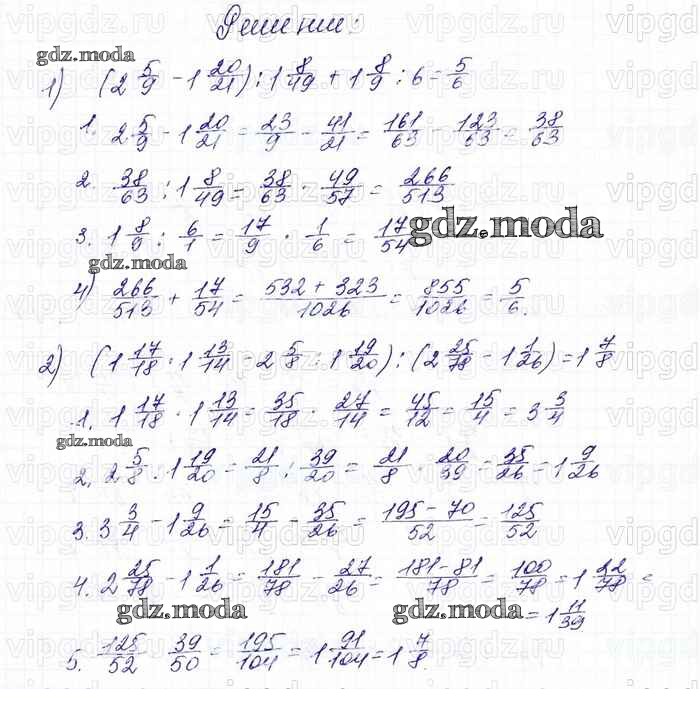 Решение:
gdz.moda
1) (2 5/9 - 1 20/21) : 1 8/49 + 1 8/9 : 6 = 5/6
1. 2 5/9 - 1 20/21 = 23/9 - 41/21 = 161/63 - 123/63 = 38/63
2. 38/63 : 1 8/49 = 38/63 · 49/57 = 266/513
3. 1 8/9 : 6/1 = 17/9 · 1/6 = 17/54
gdz.moda
gdz.moda
4) 266/513 + 17/54 = (532 + 323)/1026 = 855/1026 = 5/6.
2) (1 17/18 · 1 13/14 - 2 5/8 : 1 19/20) : (2 25/78 - 1 1/26) = 1 7/8
1. 1 17/18 · 1 13/14 = 35/18 · 27/14 = 45/12 = 15/4 = 3 3/4
gdz.moda
2. 2 5/8 : 1 19/20 = 21/8 : 39/20 = 21/8 · 20/39 = 35/26 = 1 9/26
3. 3 3/4 - 1 9/26 = 15/4 - 35/26 = (195 - 70)/52 = 125/52
4. 2 25/78 - 1 1/26 = 181/78 - 27/26 = (181 - 81)/78 = 100/78 = 1 22/78 =
= 1 11/39
gdz.moda
gdz.moda
5. 125/52 · 39/50 = 195/104 = 1 91/104 = 1 7/8.